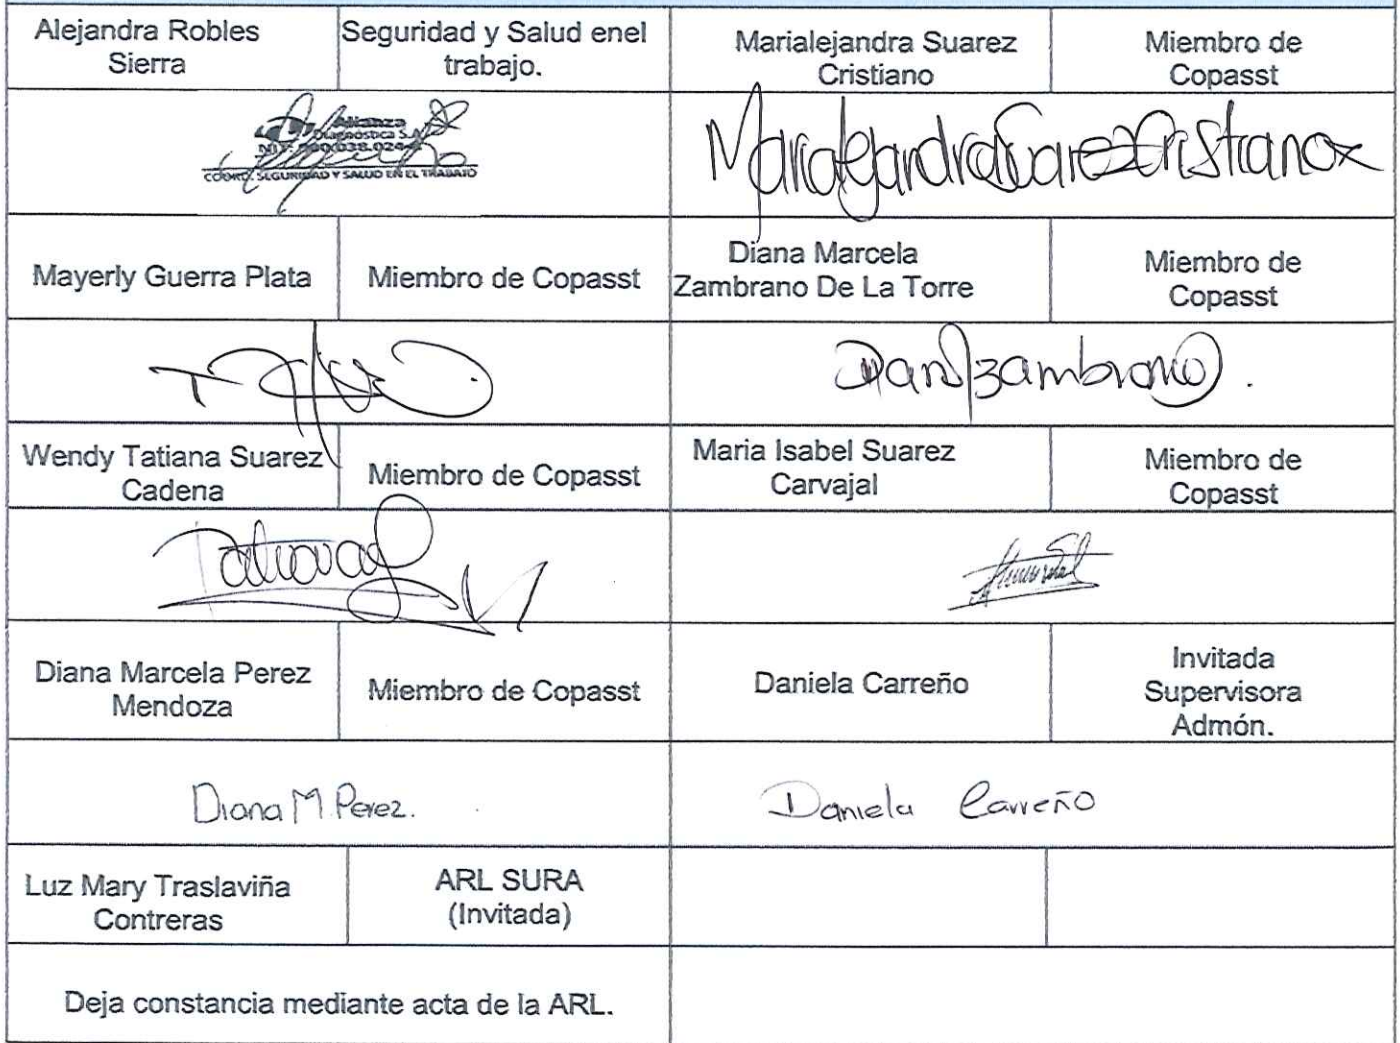 Alejandra Robles
Sierra
Seguridad y Salud enel
trabajo.
Marialejandra Suarez
Cristiano
Miembro de
Copasst
Alianza
Diagnóstica S.A.
COORD. SEGURIDAD Y SALUD EN EL TRABAJO
Marialejandra Suarez Cristiano
Mayerly Guerra Plata
Miembro de Copasst
Diana Marcela
Zambrano De La Torre
Miembro de
Copasst
Wendy Tatiana Suarez
Cadena
Miembro de Copasst
Maria Isabel Suarez
Carvajal
Miembro de
Copasst
Diana Marcela Perez
Mendoza
Miembro de Copasst
Daniela Carreño
Invitada
Supervisora
Admón.
Diana M. Perez.
Daniela Carreño
Luz Mary Traslaviña
Contreras
ARL SURA
(Invitada)
Deja constancia mediante acta de la ARL.